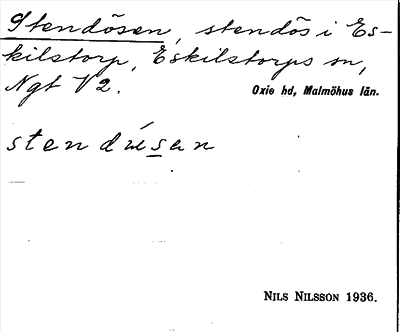 Stendösen, stendös i Es-
kilstorp, Eskilstorps sn,
Ngt V2.
Oxie hd, Malmöhus län.
stendúsan
NILS NILSSON 1936.